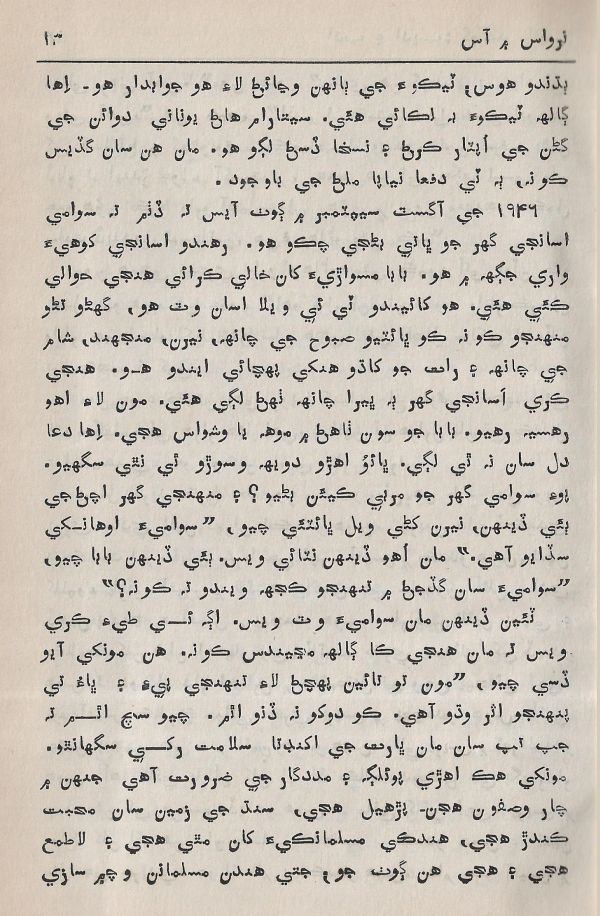 نرواس ۾ آس ۱۳
ٻڌندو هوس، ٽيڪوءَ جي ٻانهن وڃائڻ لاءِ هو جوابدار هو. اِها
ڳالهہ ٽيڪوءَ بہ لڪائي هئي. سيتارام هاڻ يوناني دوائن جي
گڻن جي اُپٽار ڪرڻ ۽ نسخا ڏسڻ لڳو هو. مان هن سان گڏيس
ڪونہ، ٻہ ٽي دفعا نياپا ملڻ جي باوجود.
۱۹۴۶ جي آگسٽ سيپٽمبر ۾ ڳوٺ آيس تہ ڏٺم تہ سوامي
اسانجي گهر جو ڀاتي بڻجي چڪو هو. رهندو اسانجي کوهيءَ
واري جڳهہ ۾ هو. بابا مسواڙيءَ کان خالي ڪرائي هنجي حوالي
ڪئي هئي. هو کائيندو ٽي ئي ويلا اسان وٽ هو، گهڻو تڻو
منهنجو ڪونہ ڪو ڀائٽيو صبوح جي چانهہ، نيرن، منجهند، شام
جي چانهہ ۽ رات جو کاڌو هنکي پهچائي ايندو هو. هنجي
ڪري اَسانجي گهر ٻہ ڀيرا چانهہ ٺهڻ لڳي هئي. مون لاءِ اهو
رهسيہ رهيو. بابا جو سون ٺاهڻ ۾ موهہ يا وشواس هجي. اِها دعا
دل سان نہ ٿي لڳي. ڀائوُ اهڙو دويهہ وسوڙو ئي نٿي سگهيو.
پوءِ سوامي گهر جو مربي ڪيئن بڻيو؟ ۽ منهنجي گهر اچڻ جي
ٻئي ڏينهن، نيرن کڻي ويل ڀائٽئي چيو، ”سواميءَ اوهانکي
سڏايو آهي.“ مان اُهو ڏينهن نٽائي ويس. ٻئي ڏينهن بابا چيو،
”سواميءَ سان گڏجڻ ۾ تنهنجو ڪجهہ ويندو تہ ڪونہ؟“
ٽئين ڏينهن مان سواميءَ وٽ ويس. اڳ ئي طيءِ ڪري
ويس تہ مان هنجي ڪا ڳالهہ مڃيندس ڪونہ. هن مونکي آيو
ڏسي چيو، ”مون تو تائين پهچڻ لاءِ تنهنجي پيءُ ۽ ڀاءُ تي
پنهنجو اثر وڌو آهي. ڪو دوکو نہ ڏنو اٿم. چيو سچ اٿم تہ
جپ تپ سان مان ڀارت جي اکنڊتا سلامت رکي سگهانٿو.
مونکي هڪ اهڙي پوئلڳ ۽ مددگار جي ضرورت آهي جنهن ۾
چار وصفون هجن۔ پڙهيل هجي، سنڌ جي زمين سان محبت
ڪندڙ هجي، هندڪي مسلمانڪيءَ کان مٿي هجي ۽ لاطمع
هجي ۽ هجي هن ڳوٺ جو، جتي هندن مسلمانن وچ ۾ سازي